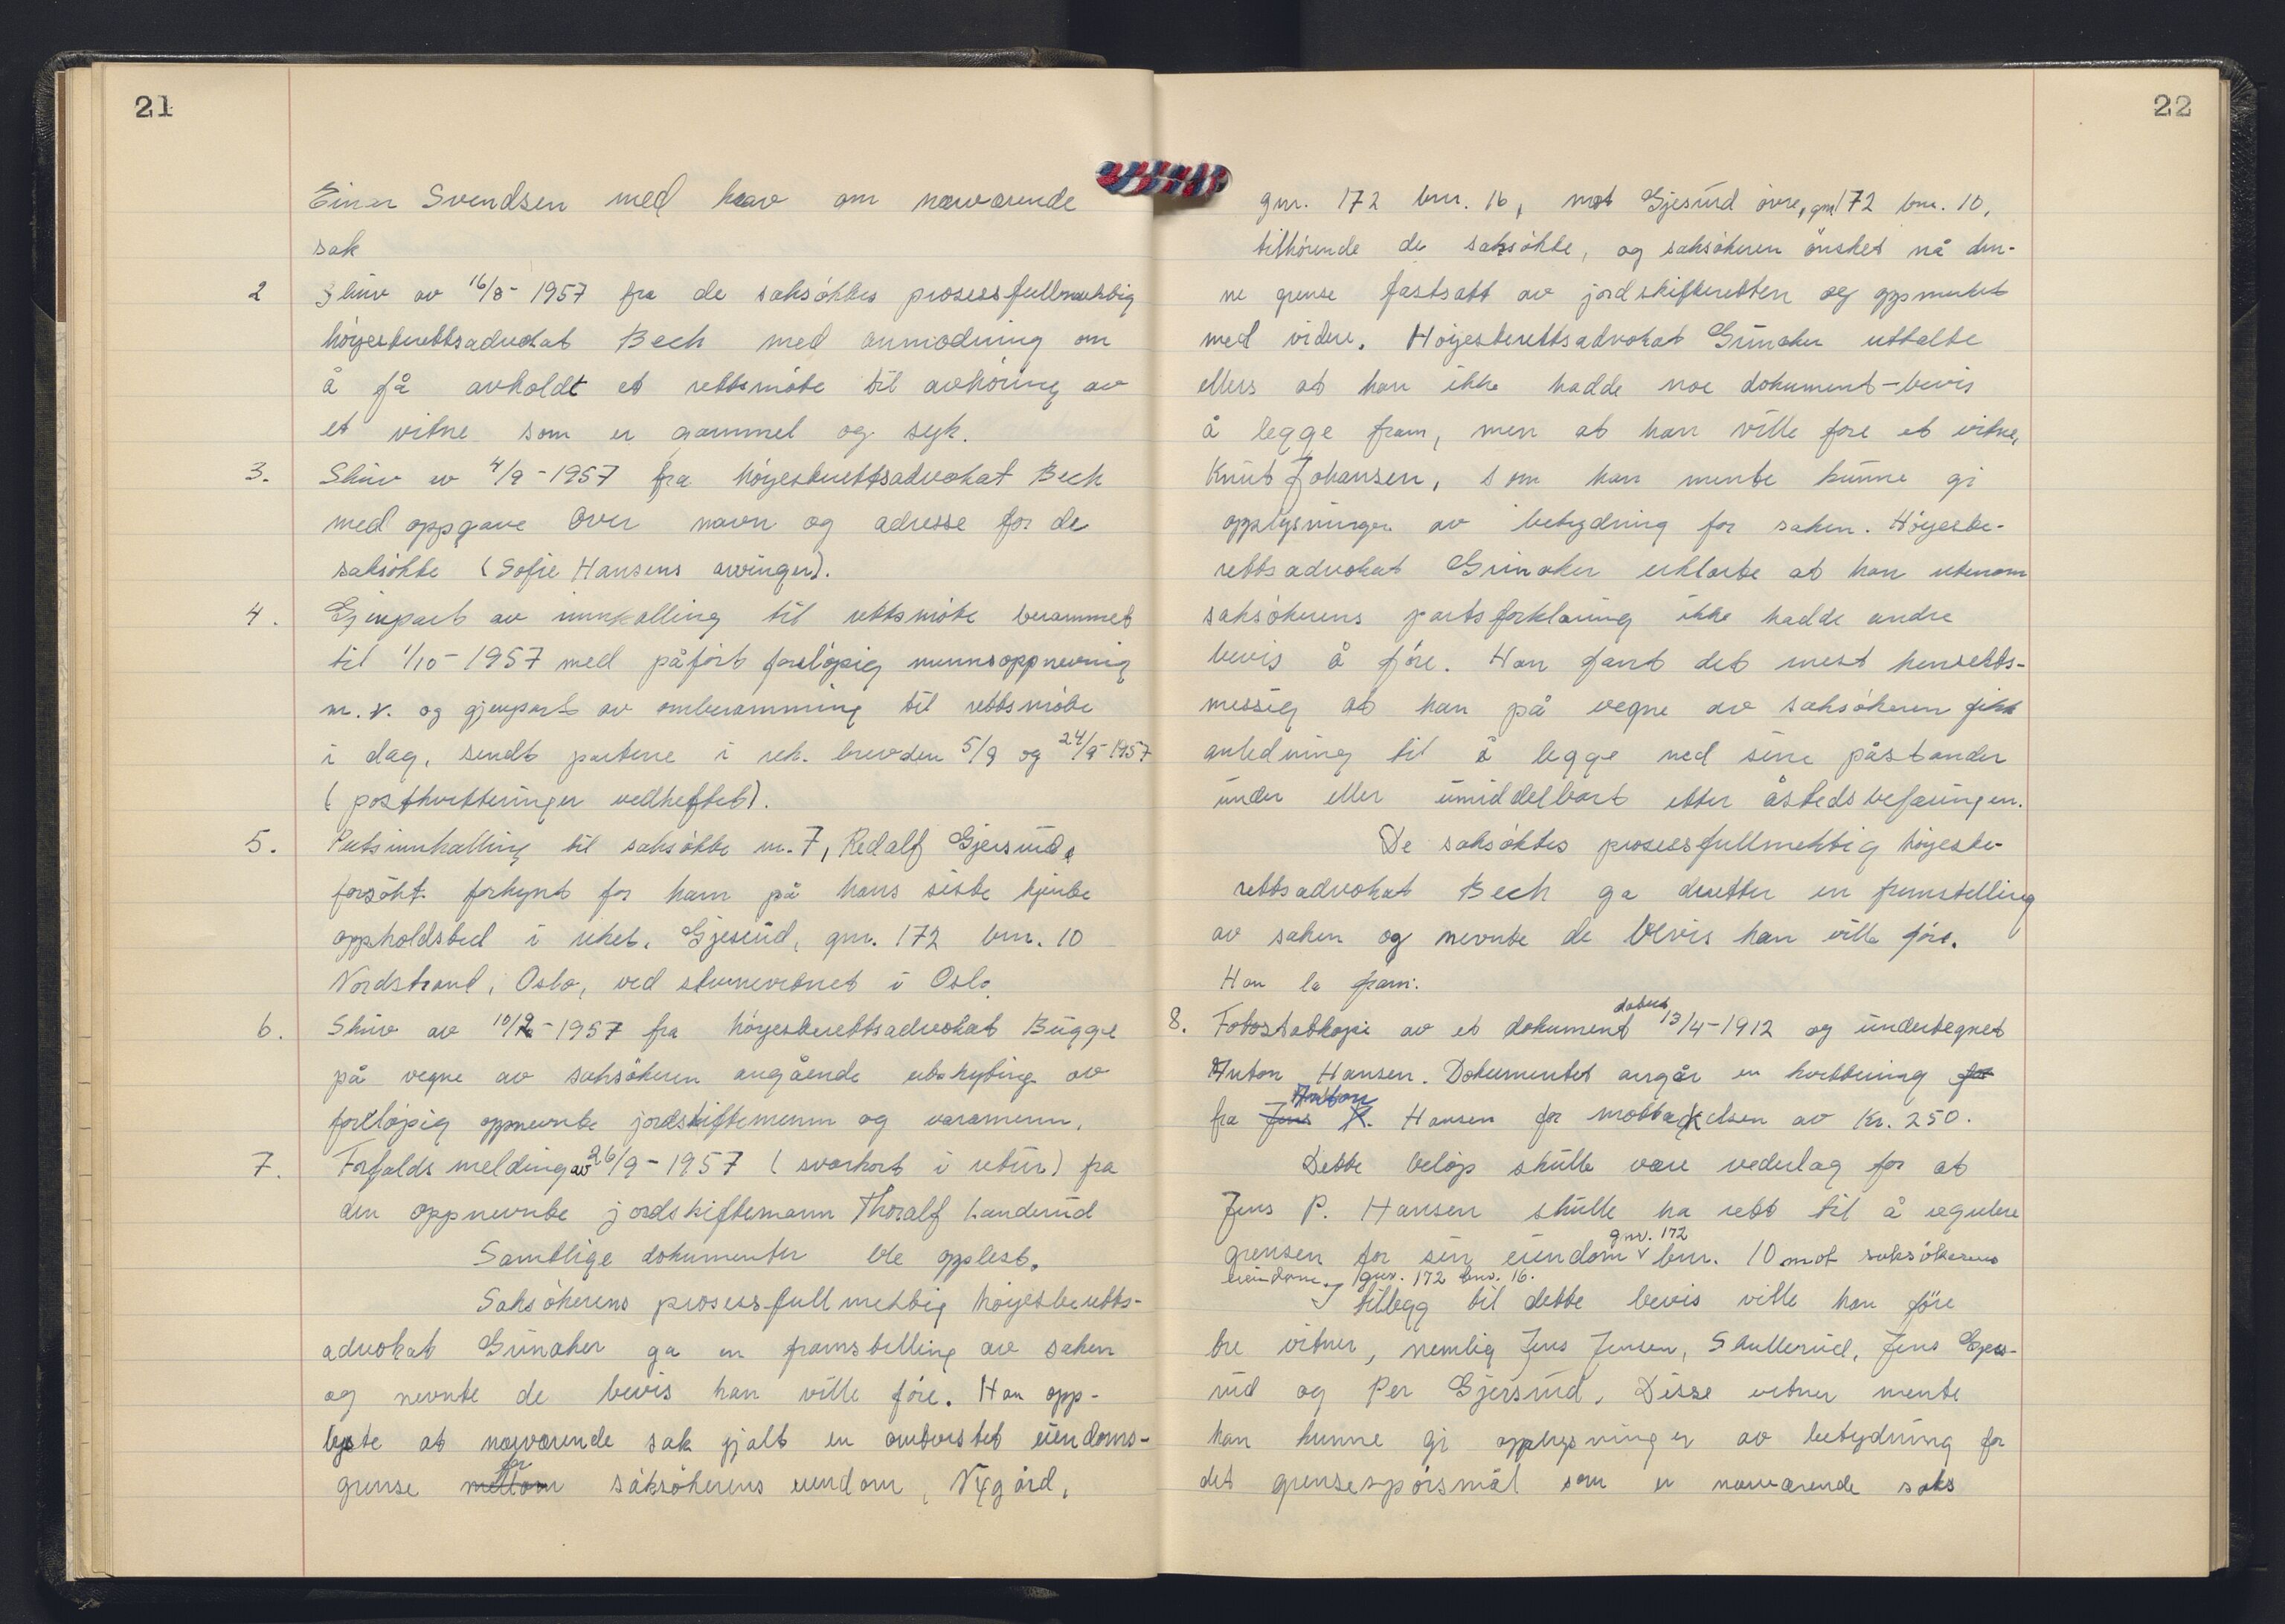 21
Einar Svendsen med krav om nærværende
sak
2 Skriv av 16/8- 1957 fra de saksøktes prosessfullmektig
høyesterettsadvokat Bech med anmodning om
å få avholdt et rettsmøte til avhøring av
et vitne som er gammel og syk.
3. Skriv av 4/9-1957 fra høyesterettsadvokat Bech
med oppgave over navn og adresse for de
saksøkte (Sofie Hansens arvinger).
4. Gjenpart av innkalling til rettsmøte berammet
til 1/10-1957 med påført foreløpig mennsoppnevning
m.v. og gjenpart av omberamming til rettsmøte
i dag, sendt partene i rek. brev den 5/9 og 24/9-1957
(postkvitteringer vedheftet).
5. Rettsinnkalling til saksøkte nr. 7, Redalf Gjersrud,
forsøkt forkynt for ham på hans siste kjente
oppholdsted i riket, Gjesrud, gnr. 172 bnr. 10
Nordstrand, Oslo, ved stevnevitnet i Oslo.
6. Skriv av 10/9-1957 fra høyesterettsadvokat Bugge
på vegne av saksøkeren angående utskyting av
foreløpig oppnevnte jordskiftemenn og varamenn.
7. Forfallsmelding av 26/9-1957 (svarkort i retur) fra
den oppnevnte jordskiftemann Thoralf Landerud
Samtlige dokumenter ble opplest.
Saksøkerens prosessfullmektig høyesteretts-
advokat Grinaker ga en framstilling av saken
og nevnte de bevis han ville føre. Han opp-
lyste at nærværende sak gjalt en omtvistet eiendoms-
grense mellom for saksøkerens eiendom, Nygård,
22
gnr. 172 bnr. 16, mot Gjesrud øvre, gnr 172 bnr. 10,
tilhørende de saksøkte, og saksøkeren ønsket nå den-
ne grense fastsatt av jordskifteretten og oppmerket
med videre. Høyesterettsadvokat Grinaker uttalte
ellers at han ikke hadde noe dokument-bevis
å legge fram, men at han ville føre et vitne,
Knut Johansen, som han mente kunne gi
opplysninger av betydning for saken. Høyeste-
rettsadvokat Grinaker erklærte at han utenom
saksøkerens partsforklaring ikke hadde andre
bevis å føre. Han fant det mest hensikts-
messig at han på vegne av saksøkeren fikk
anledning til å legge ned sine påstander
under eller umiddelbart etter åstedsbefaringen.
De saksøktes prosessfullmektig høyeste-
rettsadvokat Bech ga deretter en fremstilling
av saken og nevnte de bevis han ville føre.
Han la fram:
8. Fotostatkopi av et dokument datert 13/4-1912 og undertegnet
Anton Hansen. Dokumentet angår en kvittering for
fra Jens P. Anton Hansen for mottakelsen av Kr. 250.
Dette beløp skulle være vederlag for at
Jens P. Hansen skulle ha rett til å regulere
grensen for sin eiendom gnr. 172 bnr. 10 mot saksøkerens
eiendom, gnr. 172 bnr. 16.
I tillegg til dette bevis ville han føre
tre vitner, nemlig Jens Jensen, Skullerud, Jens Gjers-
rud og Per Gjersrud. Disse vitner mente
han kunne gi opplysninger av betydning for
det grensespørsmål som er nærværende saks